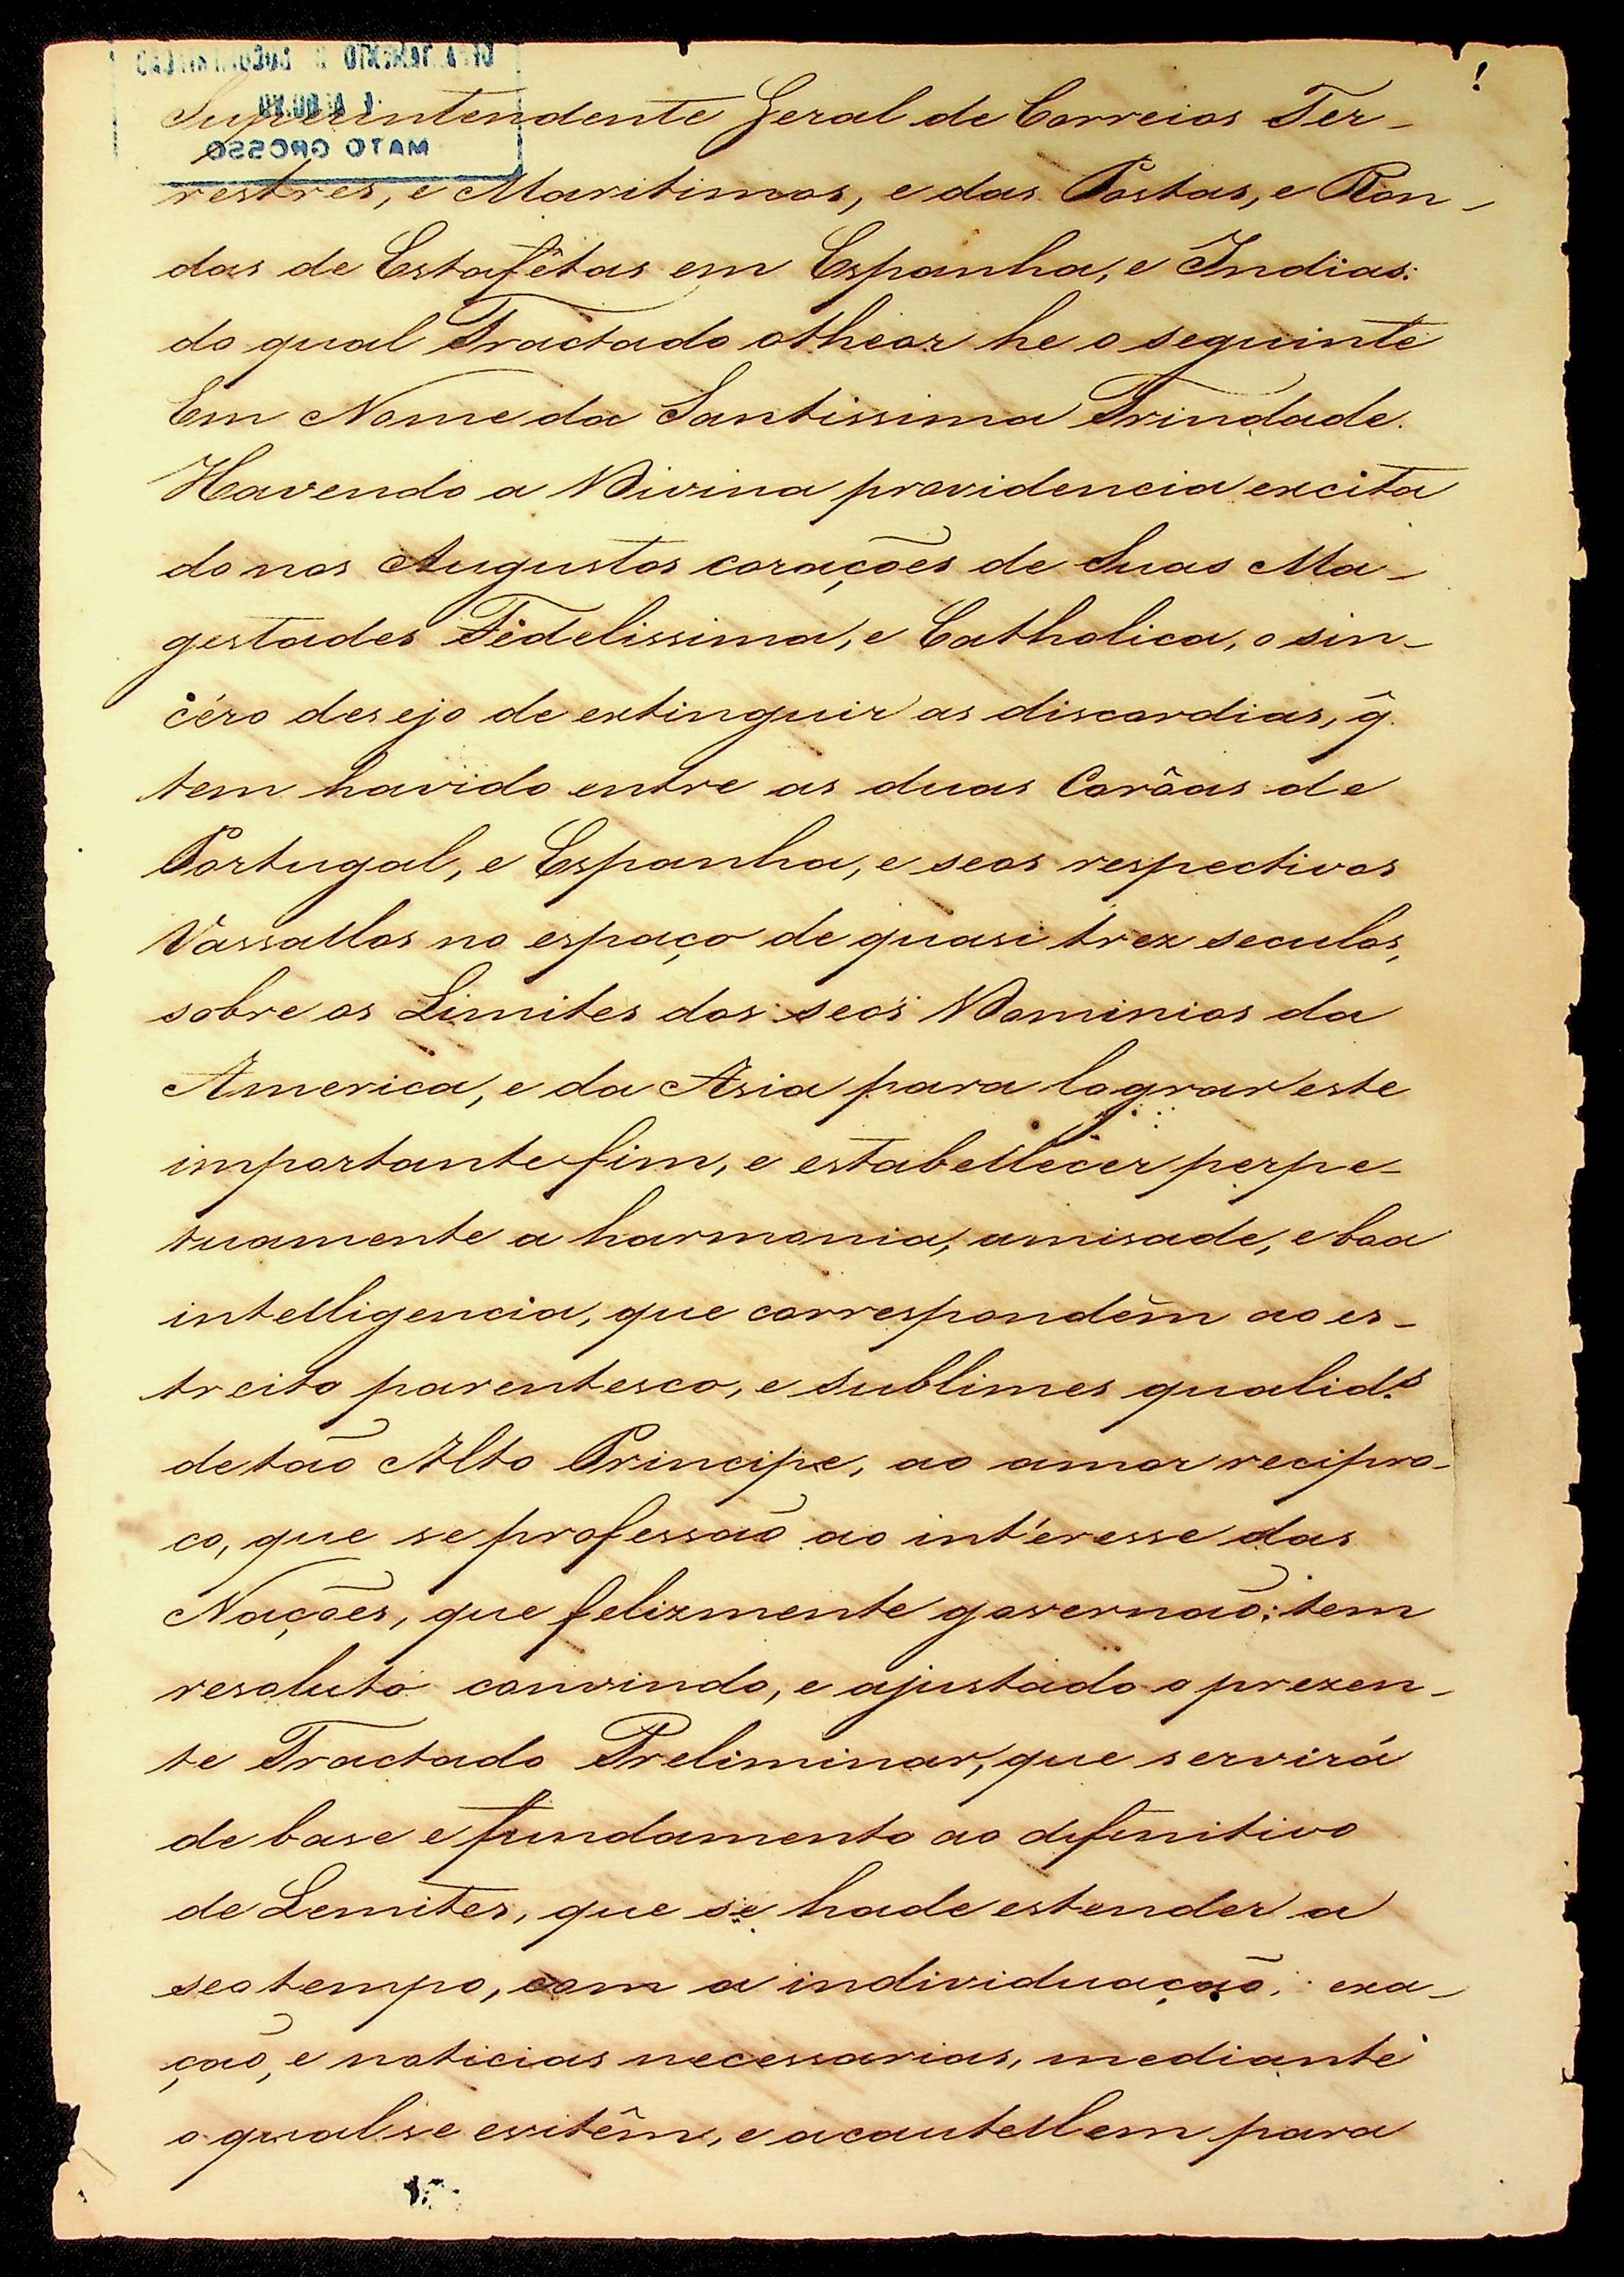 MATO GROSSO
Superintendente Geral de Correios Ter-
restres, e Maritimos, e das Postas, e Ron-
das de Estafêtas em Espanha, e Indias:
do qual Tractado o theor he o seguinte
Em Nome da Santissima Trindade.
Havendo a Divina providencia excita
do nos Augustos corações de Suas Ma-
gestades Fidelissima, e Catholica, o sin-
céro desejo de extinguir as discordias, q̂.
tem havido entre as duas Corôas de
Portugal, e Espanha, e seos respectivos
Vassallos no espaço de quasi trez seculos,
sobre os Limites dos seos Dominios da
America, e da Asia para lograr este
importante fim, e estabellecer perpe-
tuamente a harmonia, amisade, e boa
intelligencia, que correspondêm ao es-
treito parentesco, e sublimes qualid.s
de tão Alto Principe, ao amor recipro-
co, que se professão ao intéresse das
Nações, que felizmente governão: tem
resoluto convindo, e ajustado o prezen-
te Tractado Preliminar, que servirá
de base e fundamento ao difinitivo
de Lemites, que se hade estender a
seo tempo, com a individuação, exa-
ção, e noticias necessarias, mediante
o qual se evitêm, e acautellem para